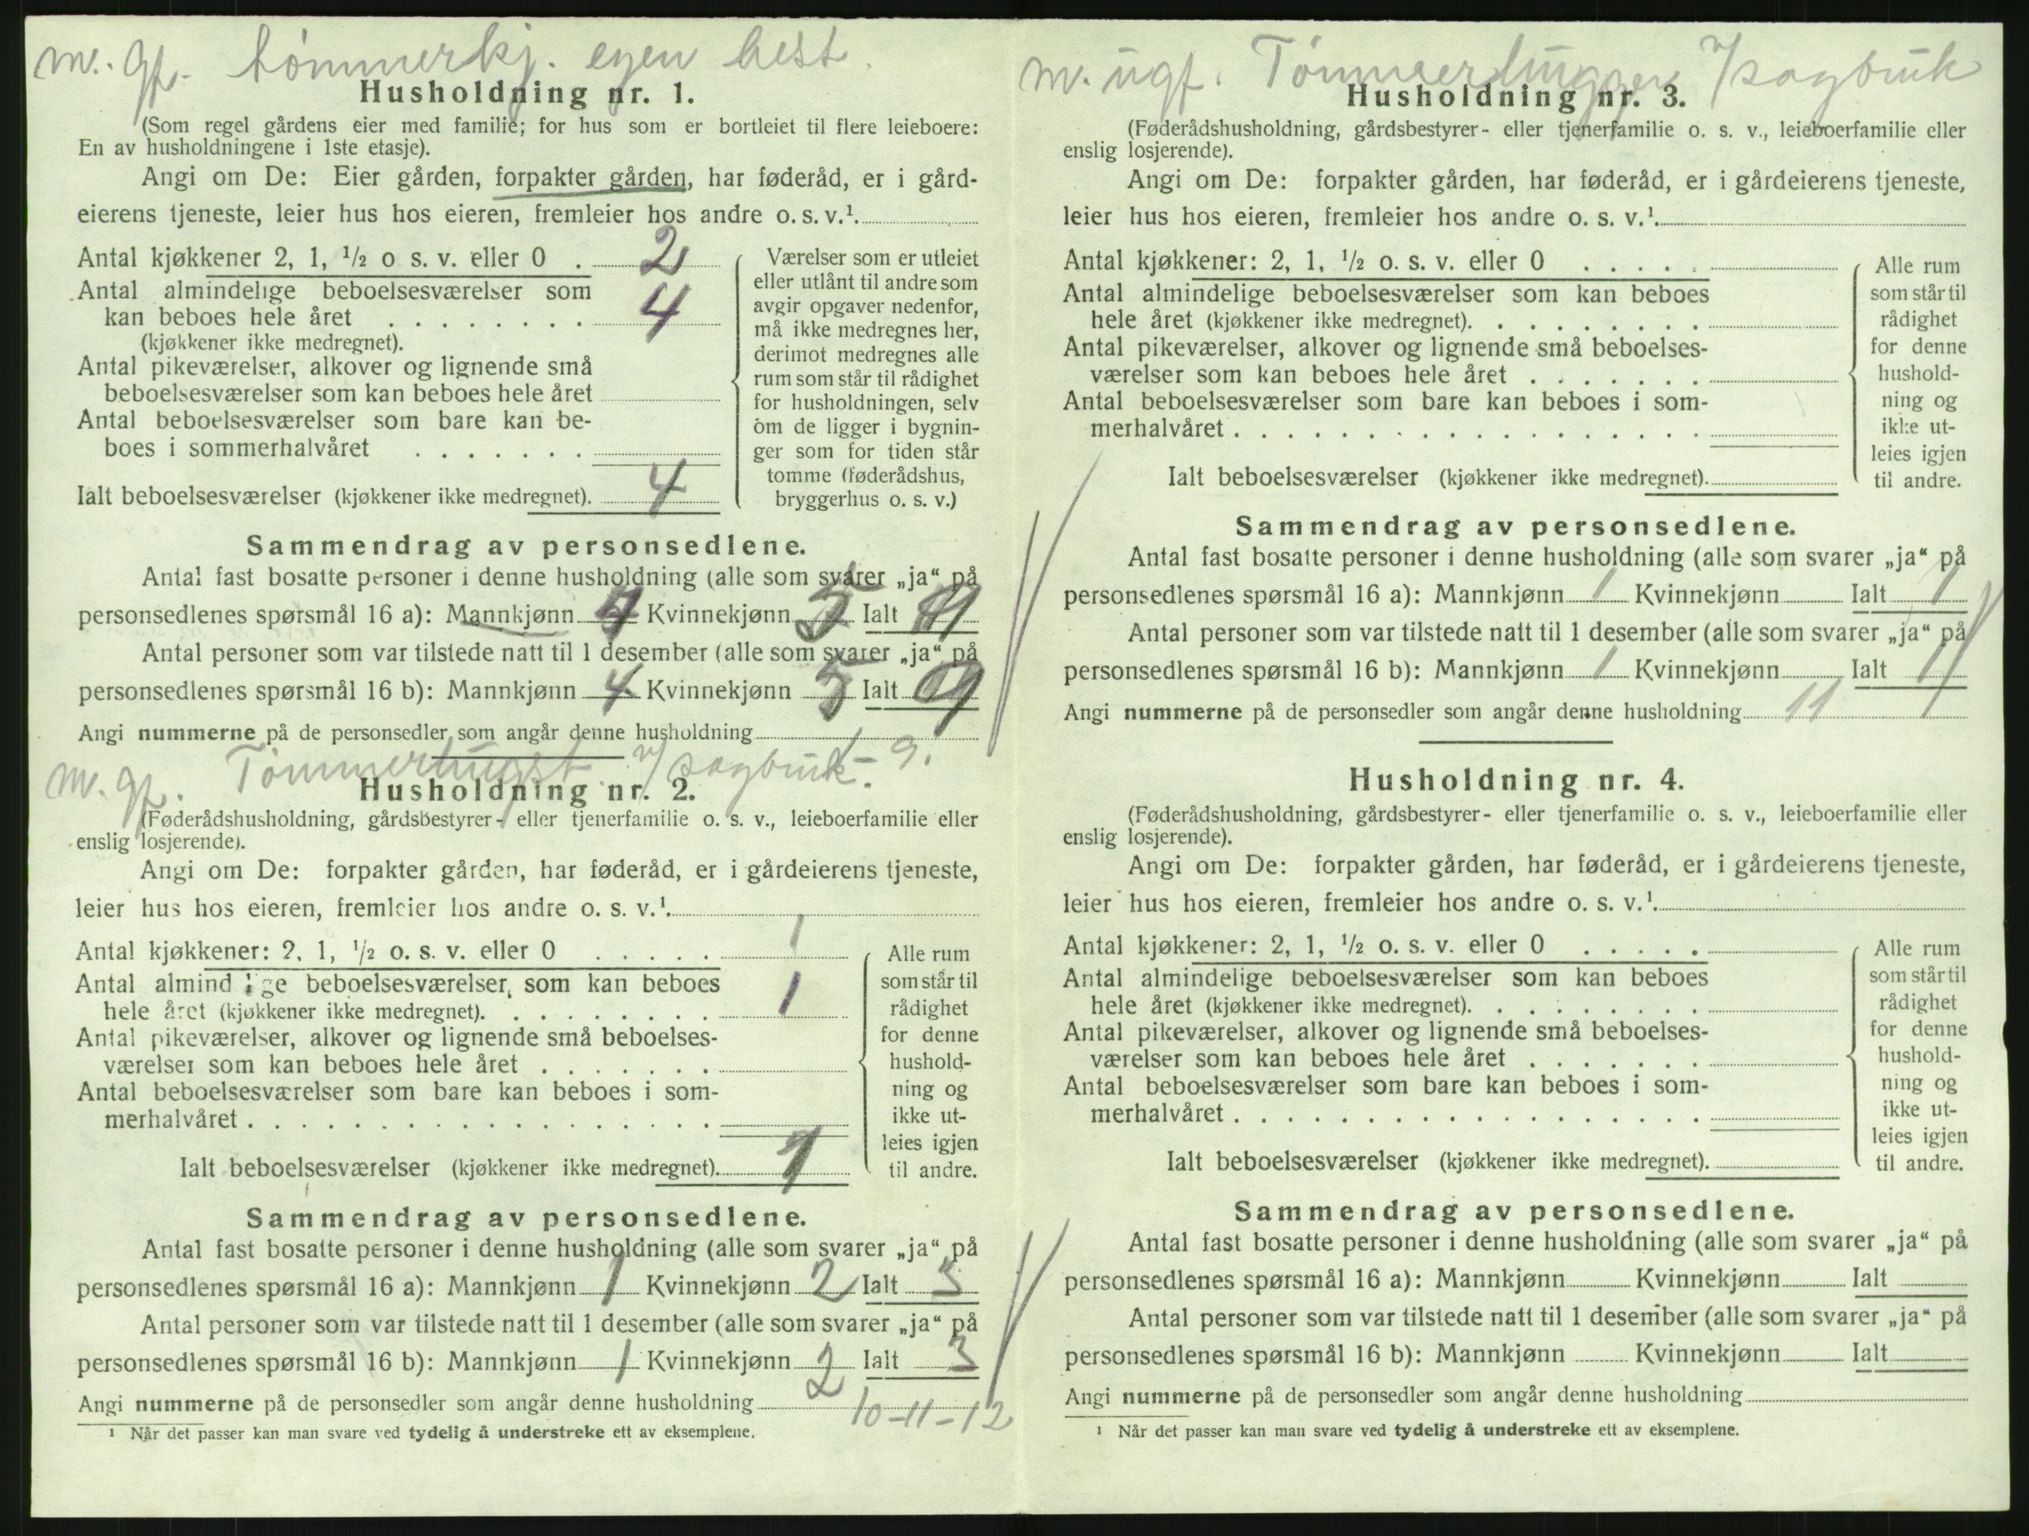 m. gf. tømmerkj. egen hest.
Husholdning nr. 1.
(Som regel gårdens eier med familie; for hus som er bortleiet til flere leieboere:
En av husholdningene i 1ste etasje).
Angi om De: Eier gården, forpakter gården, har føderåd, er i gård-
eierens tjeneste, leier hus hos eieren, fremleier hos andre o. s. v.¹.
Antal kjøkkener 2, 1, ½ o s. v. eller 0 . 2
Antal almindelige beboelsesværelser som
kan beboes hele året . . . . . . . . 4
(kjøkkener ikke medregnet).
Antal pikeværelser, alkover og lignende små
beboelsesværelser som kan beboes hele året
Antal beboelsesværelser som bare kan be-
boes i sommerhalvåret . . . . . . .
Ialt beboelsesværelser (kjøkkener ikke medregnet). 4
Værelser som er utleiet
eller utlånt til andre som
avgir opgaver nedenfor,
må ikke medregnes her,
derimot medregnes alle
rum som står til rådighet
for husholdningen, selv
om de ligger i bygnin-
ger som for tiden står
tomme (føderådshus,
bryggerhus o. s. v.)
Sammendrag av personsedlene.
Antal fast bosatte personer i denne husholdning (alle som svarer „ja“ på
personsedlenes spørsmål 16 a): Mannkjønn Kvinnekjønn 5 Ialt
Antal personer som var tilstede natt til 1 desember (alle som svarer „ja“ på
personsedlenes spørsmål 16 b): Mannkjønn 4 Kvinnekjønn 5 Ialt 9
Angi nummerne på de personsedler som angår denne husholdning 1-9.
m. gf. Tømmerhugst v/sagbruk
Husholdning nr. 2.
(Føderådshusholdning, gårdsbestyrer- eller tjenerfamilie o. s. v., leieboerfamilie eller
enslig losjerende).
Angi om De: forpakter gården, har føderåd, er i gårdeierens tjeneste,
leier hus hos eieren, fremleier hos andre o. s. v.¹.
Antal kjøkkener: 2, 1, ½ o. s. v. eller 0 . . . . . 1
Antal almindelige beboelsesværelser, som kan beboes
hele året (kjøkkener ikke medregnet). . . . . . . . . 1
Antal pikeværelser, alkover og lignende små beboelses-
værelser som kan beboes hele året . . . . . . .
Antal beboelsesværelser som bare kan beboes i som-
merhalvåret . . . . . . . . . . . . . . . . . .
Ialt beboelsesværelser (kjøkkener ikke medregnet). 1
Alle rum
som står til
rådighet
for denne
hushold-
ning og
ikke ut-
leies igjen
til andre.
Sammendrag av personsedlene.
Antal fast bosatte personer i denne husholdning (alle som svarer „ja“ på
personsedlenes spørsmål 16 a): Mannkjønn 1 Kvinnekjønn 2 Ialt 3
Antal personer som var tilstede natt til 1 desember (alle som svarer „ja“ på
personsedlenes spørsmål 16 b): Mannkjønn 1 Kvinnekjønn 2 Ialt 3
2
Angi nummerne på de personsedler som angår denne husholdning 10-11-12
¹ Når det passer kan man svare ved tydelig å understreke ett av eksemplene.
m. ugf. Tømmerhugger v/sagbruk
Husholdning nr. 3.
(Føderådshusholdning, gårdsbestyrer- eller tjenerfamilie o. s. v., leieboerfamilie eller
enslig losjerende).
Angi om De: forpakter gården, har føderåd, er i gårdeierens tjeneste,
leier hus hos eieren, fremleier hos andre o. s. v.¹.
Antal kjøkkener: 2, 1, ½ o. s. v. eller 0 . . . . .
Antal almindelige beboelsesværelser som kan beboes
hele året (kjøkkener ikke medregnet). . . . . . . . .
Antal pikeværelser, alkover og lignende små beboelses-
værelser som kan beboes hele året . . . . . . .
Antal beboelsesværelser som bare kan beboes i som-
merhalvåret . . . . . . . . . . . . . . . . . .
Ialt beboelsesværelser (kjøkkener ikke medregnet).
Alle rum
som står til
rådighet
for denne
hushold-
ning og
ikke ut-
leies igjen
til andre.
Sammendrag av personsedlene.
Antal fast bosatte personer i denne husholdning (alle som svarer „ja“ på
personsedlenes spørsmål 16 a): Mannkjønn 1 Kvinnekjønn Ialt 1
Antal personer som var tilstede natt til 1 desember (alle som svarer „ja“ på
personsedlenes spørsmål 16 b): Mannkjønn 1 Kvinnekjønn Ialt 1
Angi nummerne på de personsedler som angår denne husholdning 11
Husholdning nr. 4.
(Føderådshusholdning, gårdsbestyrer- eller tjenerfamilie o. s. v., leieboerfamilie eller
enslig losjerende).
Angi om De: forpakter gården, har føderåd, er i gårdeierens tjeneste,
leier hus hos eieren, fremleier hos andre o. s. v.¹.
Antal kjøkkener: 2, 1, ½ o. s. v. eller 0 . . . . .
Antal almindelige beboelsesværelser som kan beboes
hele året (kjøkkener ikke medregnet). . . . . . . . .
Antal pikeværelser, alkover og lignende små beboelses-
værelser som kan beboes hele året . . . . . . .
Antal beboelsesværelser som bare kan beboes i som-
merhalvåret . . . . . . . . . . . . . . . . . .
Ialt beboelsesværelser (kjøkkener ikke medregnet).
Alle rum
som står til
rådighet
for denne
hushold-
ning og
ikke ut-
leies igjen
til andre.
Sammendrag av personsedlene.
Antal fast bosatte personer i denne husholdning (alle som svarer „ja“ på
personsedlenes spørsmål 16 a): Mannkjønn Kvinnekjønn Ialt
Antal personer som var tilstede natt til 1 desember (alle som svarer „ja“ på
personsedlenes spørsmål 16 b): Mannkjønn Kvinnekjønn Ialt
Angi nummerne på de personsedler som angår denne husholdning
¹ Når det passer kan man svare ved tydelig å understreke ett av eksemplene.